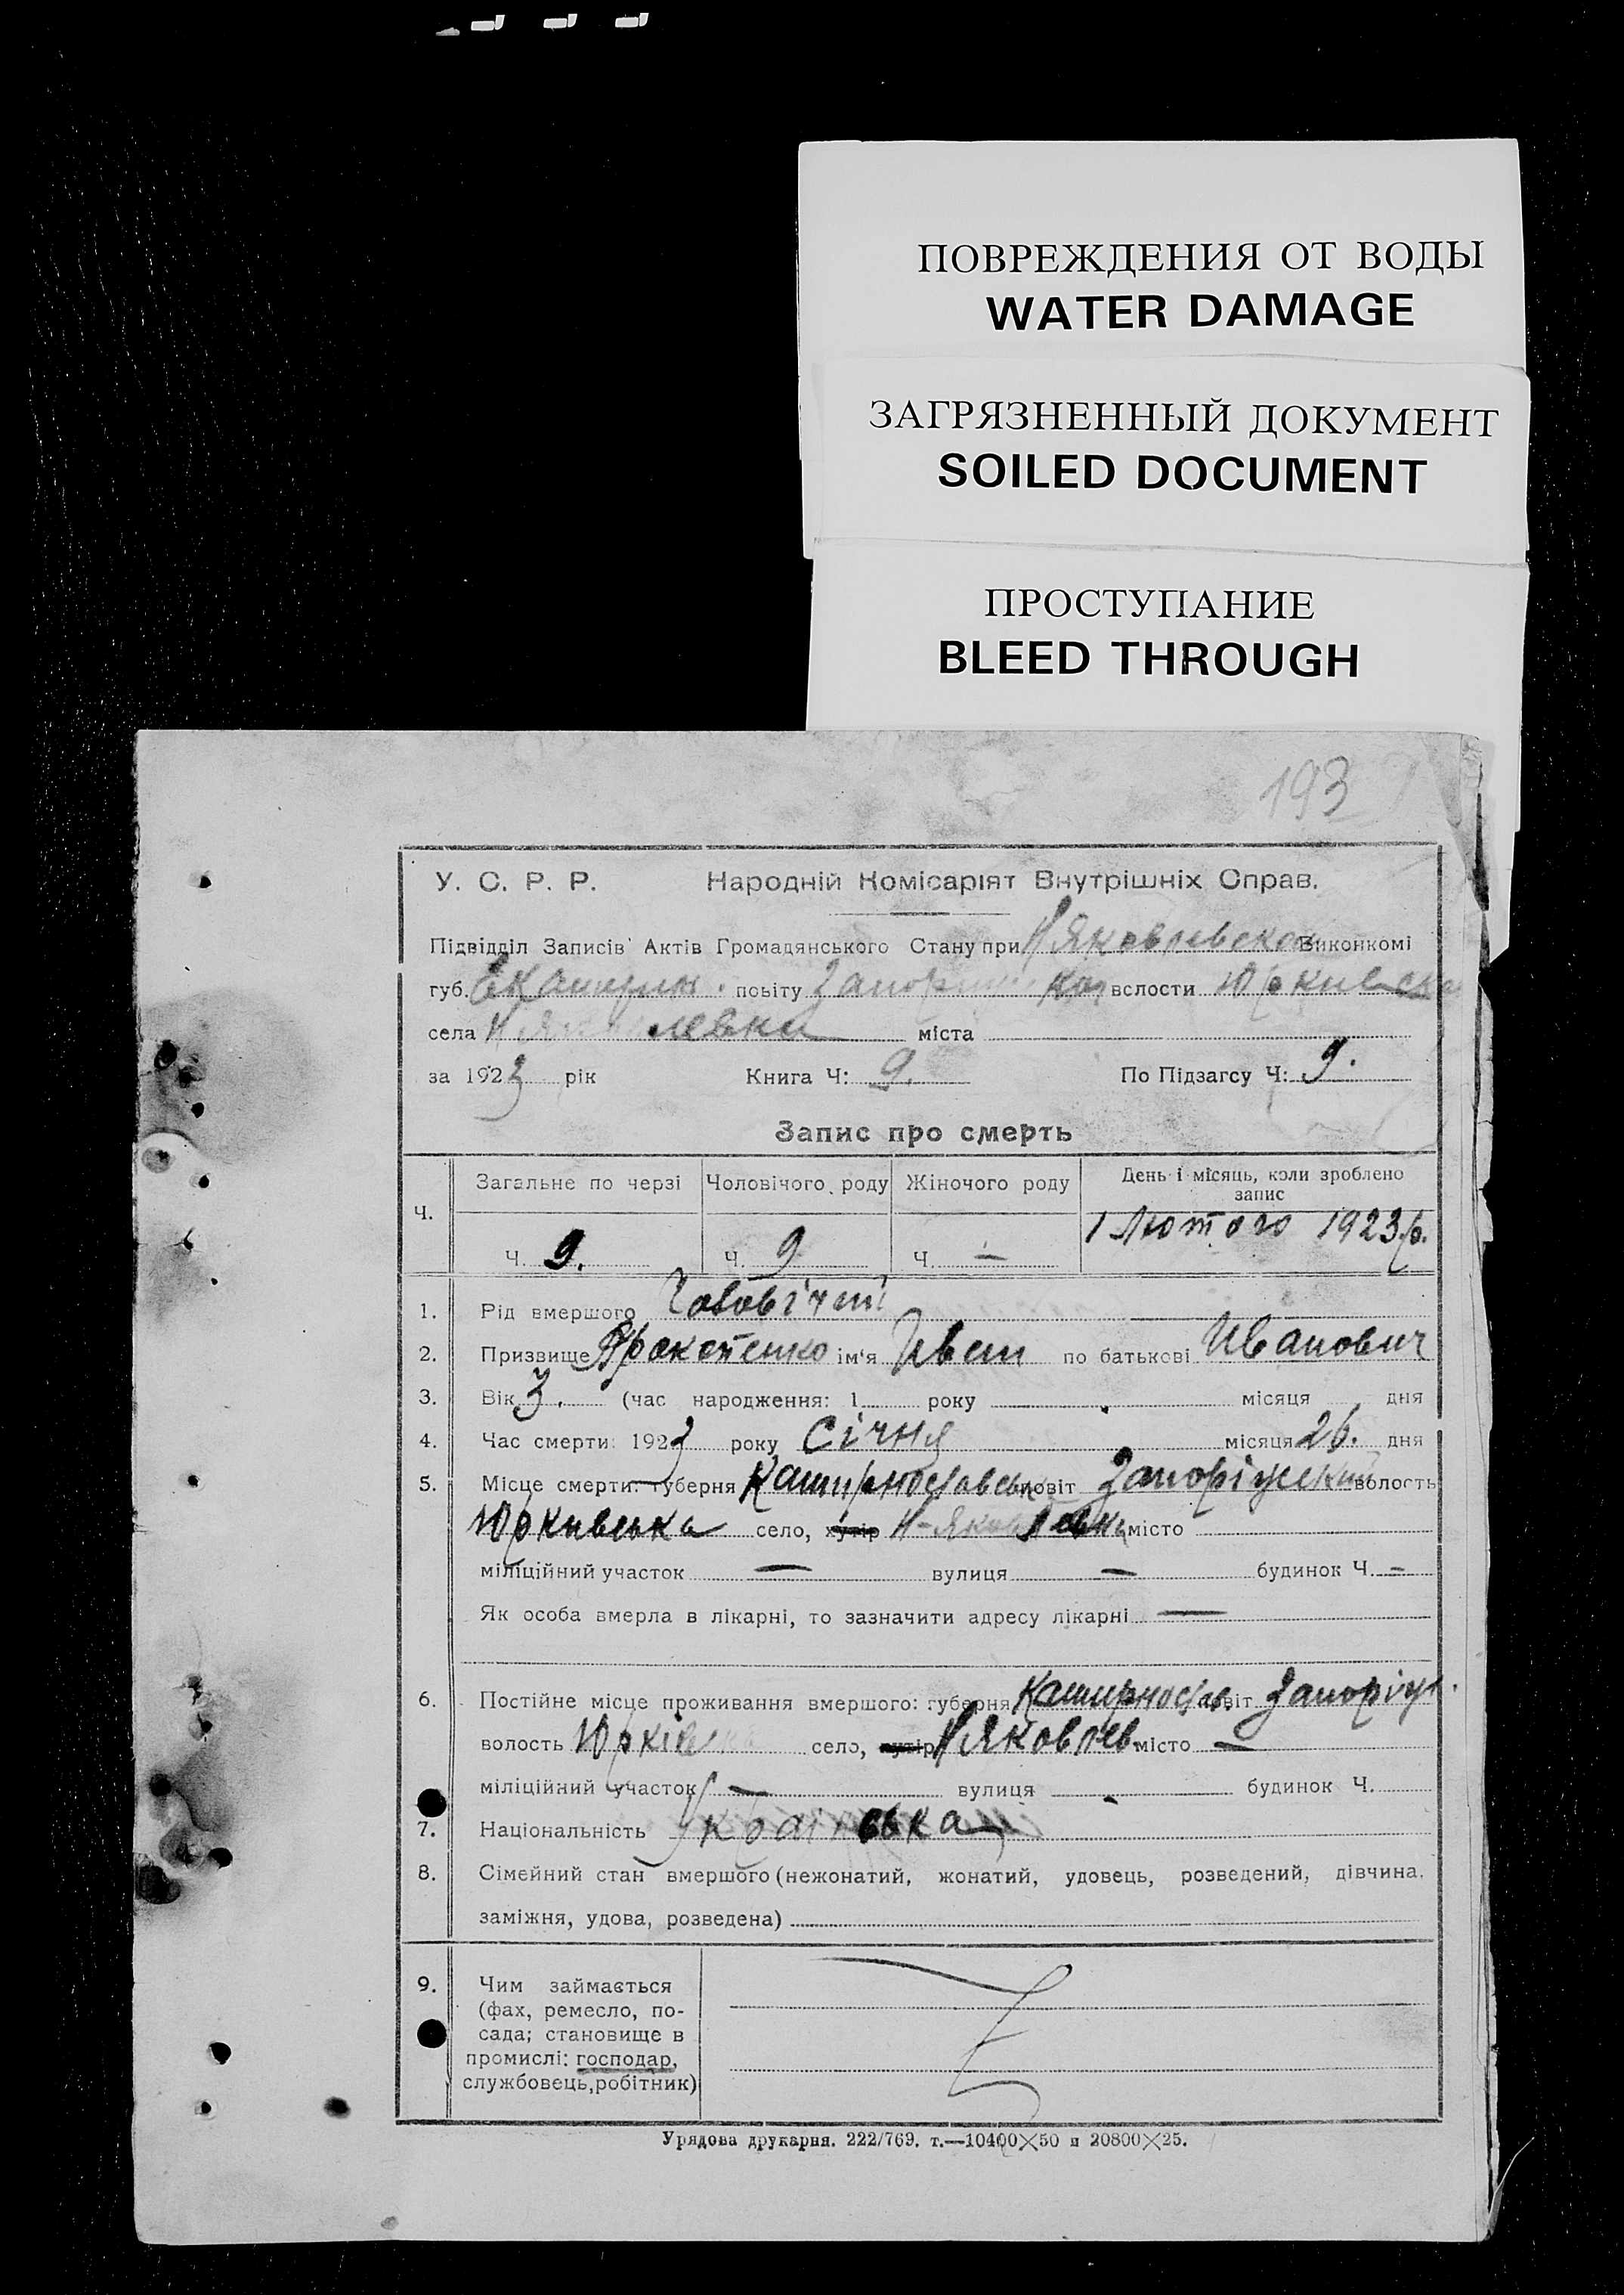 ПОВРЕЖДЕНИЯ ОТ ВОДЫ
WATER DAMAGE
ЗАГРЯЗНЕННЫЙ ДОКУМЕНТ
SOILED DOCUMENT
ПРОСТУПАНИЕ
BLEED THROUGH
193
У. С. Р. Р. Народній Комісаріят Внутрішніх Справ.
Підвідділ Записів Актів Громадянського Стану при Н Яковлевском Виконкомі
губ. Екатерин. повіту волости Юркивска
села міста
за 1923 рік Книга Ч: 9. По Підзагсу Ч: 9.
Запис про смерть
Ч. Загальне по черзі Чоловічого роду Жіночого роду День і місяць, коли зроблено запис
Ч. 9. Ч. 9 Ч. — 1 Лютого 1923 р.
1. Рід вмершого
2. Призвище Прокопенко ім'я Иван по батькові Иванович
3. Вік 3. (час народження: 1 року місяця дня
4. Час смерти: 1923 року Січня місяця 26. дня
5. Місце смерти: губерня повіт Запоріжский волость
Юркивська село, хутір Н-Яковлевка місто
міліційний участок — вулиця — будинок Ч. —
Як особа вмерла в лікарні, то зазначити адресу лікарні —
6. Постійне місце проживання вмершого: губерня повіт Запоріж.
волость Юрківска село, хутір Н Яковлев місто —
міліційний участок — вулиця будинок Ч.
7. Національність Українська
8. Сімейний стан вмершого (нежонатий, жонатий, удовець, розведений, дівчина,
заміжня, удова, розведена)
9. Чим займається
(фах, ремесло, по-
сада; становище в
промислі: господар,
службовець, робітник)
Урядова друкарня. 222/769. т.—10400×50 и 20800×25.